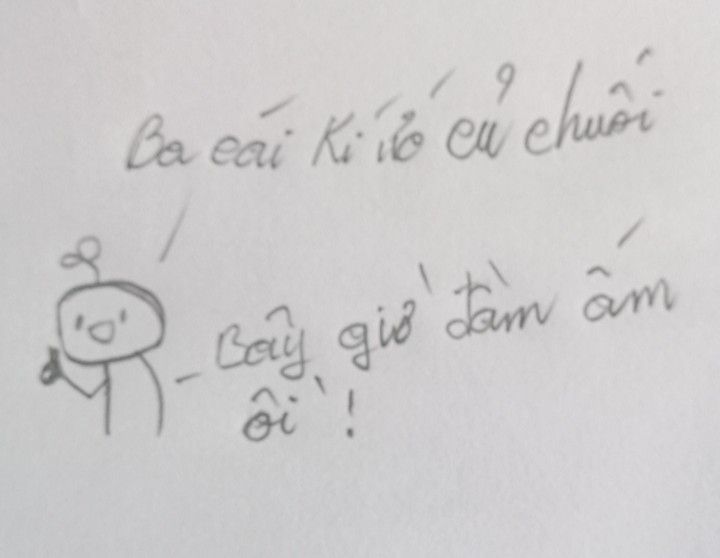 Ba cái Kí ức củ chuối
Bây giờ đầm ấm
ôi!